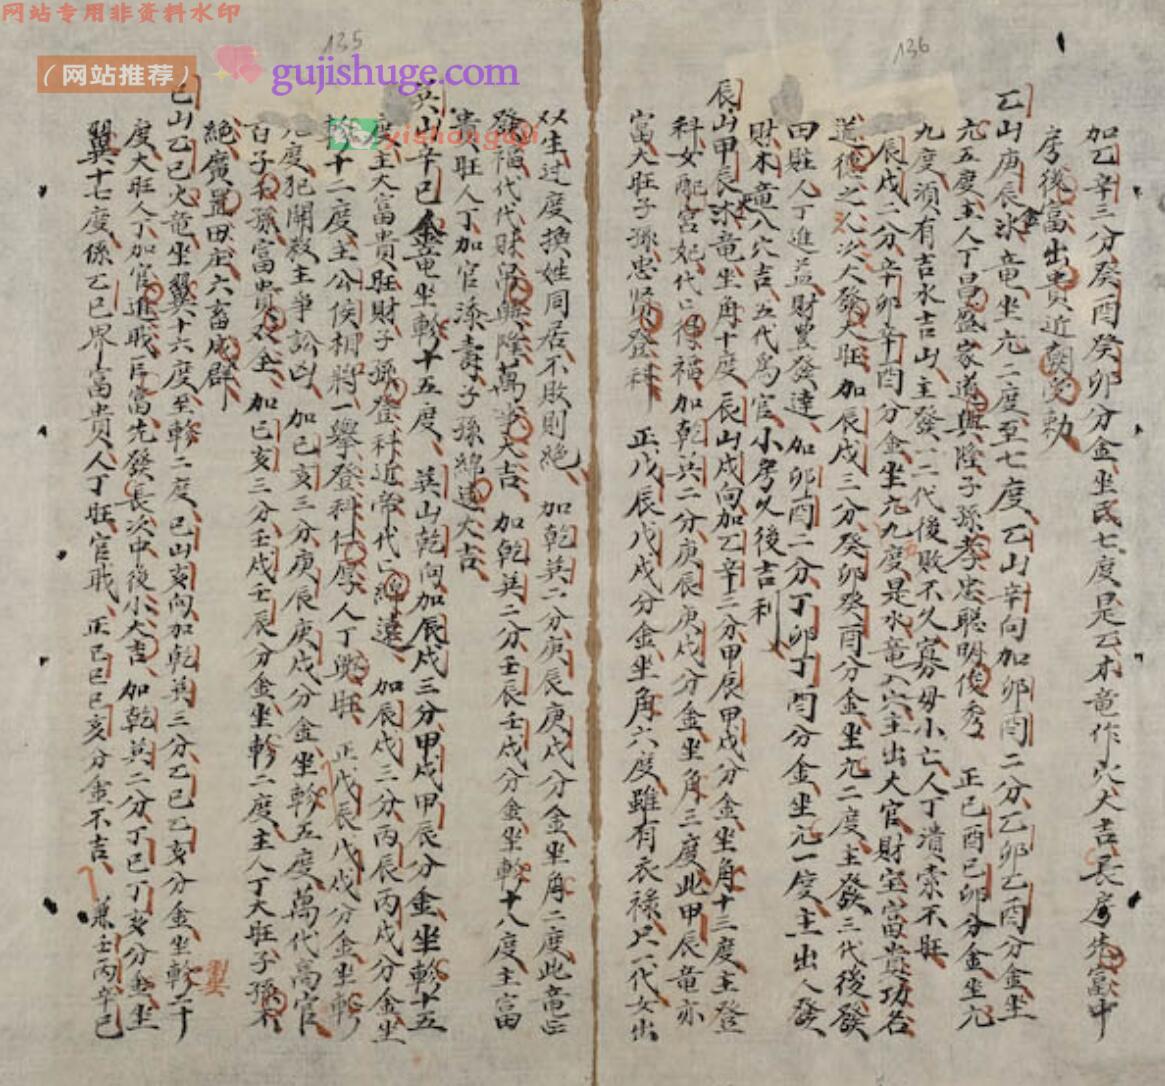 网站专用非资料水印
(网站推荐)
gujishuge.com
yishangui
136
加乙辛三分癸酉癸卯分金坐氐七度是乙木竜作穴大吉長房先富中
房後富出貴近朝受勅
乙山庚辰金竜坐亢二度至七度乙山辛向加卯酉二分乙卯乙酉分金坐
亢五度主人丁昌盛家道興隆子孫孝忠聰明俊秀 正己酉己卯分金坐亢
九度須有吉水吉山主發一二代後敗不久寡母小亡人丁潰索不旺
辰戌二分辛卯辛酉分金坐亢九度是水竜入穴主出大官財宝富貴功名
道德之人次大發大旺加辰戌三分癸卯癸酉分金坐亢二度主發三代後發
田庄人丁進益財豊發達 加卯酉二分丁卯丁酉分金坐亢一度主出人發
財木竜八穴吉五代爲官小房久後吉利
辰山甲辰木竜坐角十度辰山戌向加乙辛三分甲辰甲戌分金坐角十三度主登
科女配宮妃代代得福加乾巽二分庚辰庚戌分金坐角三度此甲辰竜亦
富大旺子孫忠賢登科 正戊辰戊戌分金坐角六度雖有衣禄只一代女出
135
双生过度換姓同居不敗則絶 加乾巽二分庚辰庚戌分金坐角二度此竜正
發福代代財帛興隆萬事大吉 加乾巽二分壬辰壬戌分金坐軫十八度主富
貴旺人丁加官添壽子孫綿遠大吉
巽山辛巳金竜坐軫十五度 巽山乾向加辰戌三分甲戌甲辰分金坐軫十五
度主大富貴旺財子孫登科近帝代代綿遠 加辰戌二分丙辰丙戌分金坐
軫十二度主公侯相將一舉登科仁厚人丁興旺 正戊辰戊戌分金坐軫
九度犯關殺主爭訟凶 加巳亥三分庚辰庚戌分金坐軫五度萬代高官
百子千孫富貴双全 加巳亥三分壬戌壬辰分金坐軫二度主人丁大旺子孫不
絶廣置田庄六畜成群
巳山乙巳火竜坐翼十六度至軫二度巳山亥向加乾巽三分乙巳乙亥分金坐軫二十
度大旺人丁加官進戢巨富先發長次中後小大吉 加乾巽二分丁巳丁亥分金坐
翼十七度係乙巳界富貴人丁旺官戢 正己巳己亥分金不吉 兼壬丙辛巳